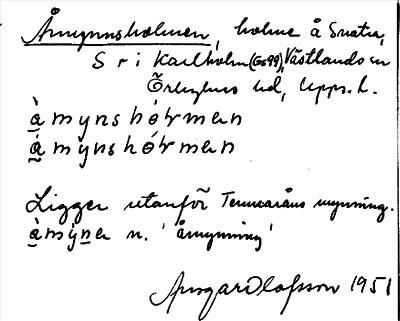 Åmynnsholmen, holme å Snatra,
S r i Karlholm (Gs99), Västlands sn
Örbyhus hd, Upps. l.
àmynshóɫmen
ámỳnshóɫmen
Ligger utanför Temnaråns mynning.
àmýne n. 'åmynning'
Ansgar Olofsson 1951